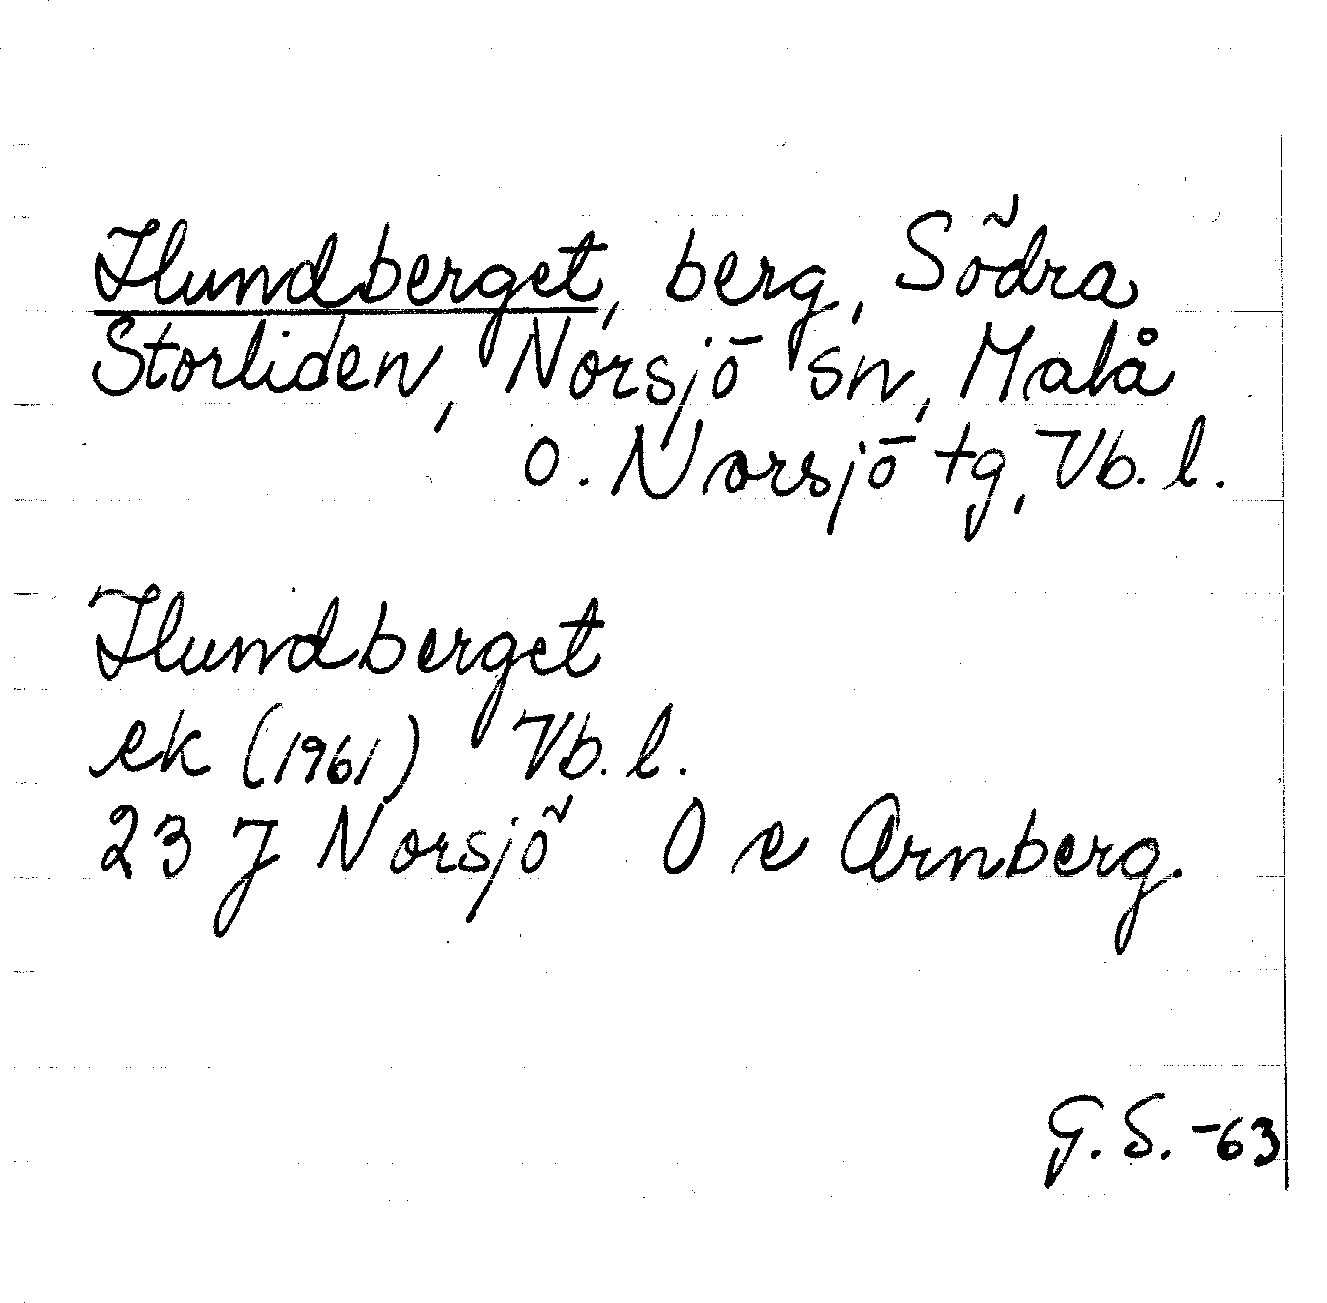 Hundberget, berg, Södra
Storliden, Norsjö sn, Malå
o. Norsjö tg, Vb. l.
Hundberget
ek (1961) Vb. l.
23 J Norsjö O e Arnberg.
G. S. -63